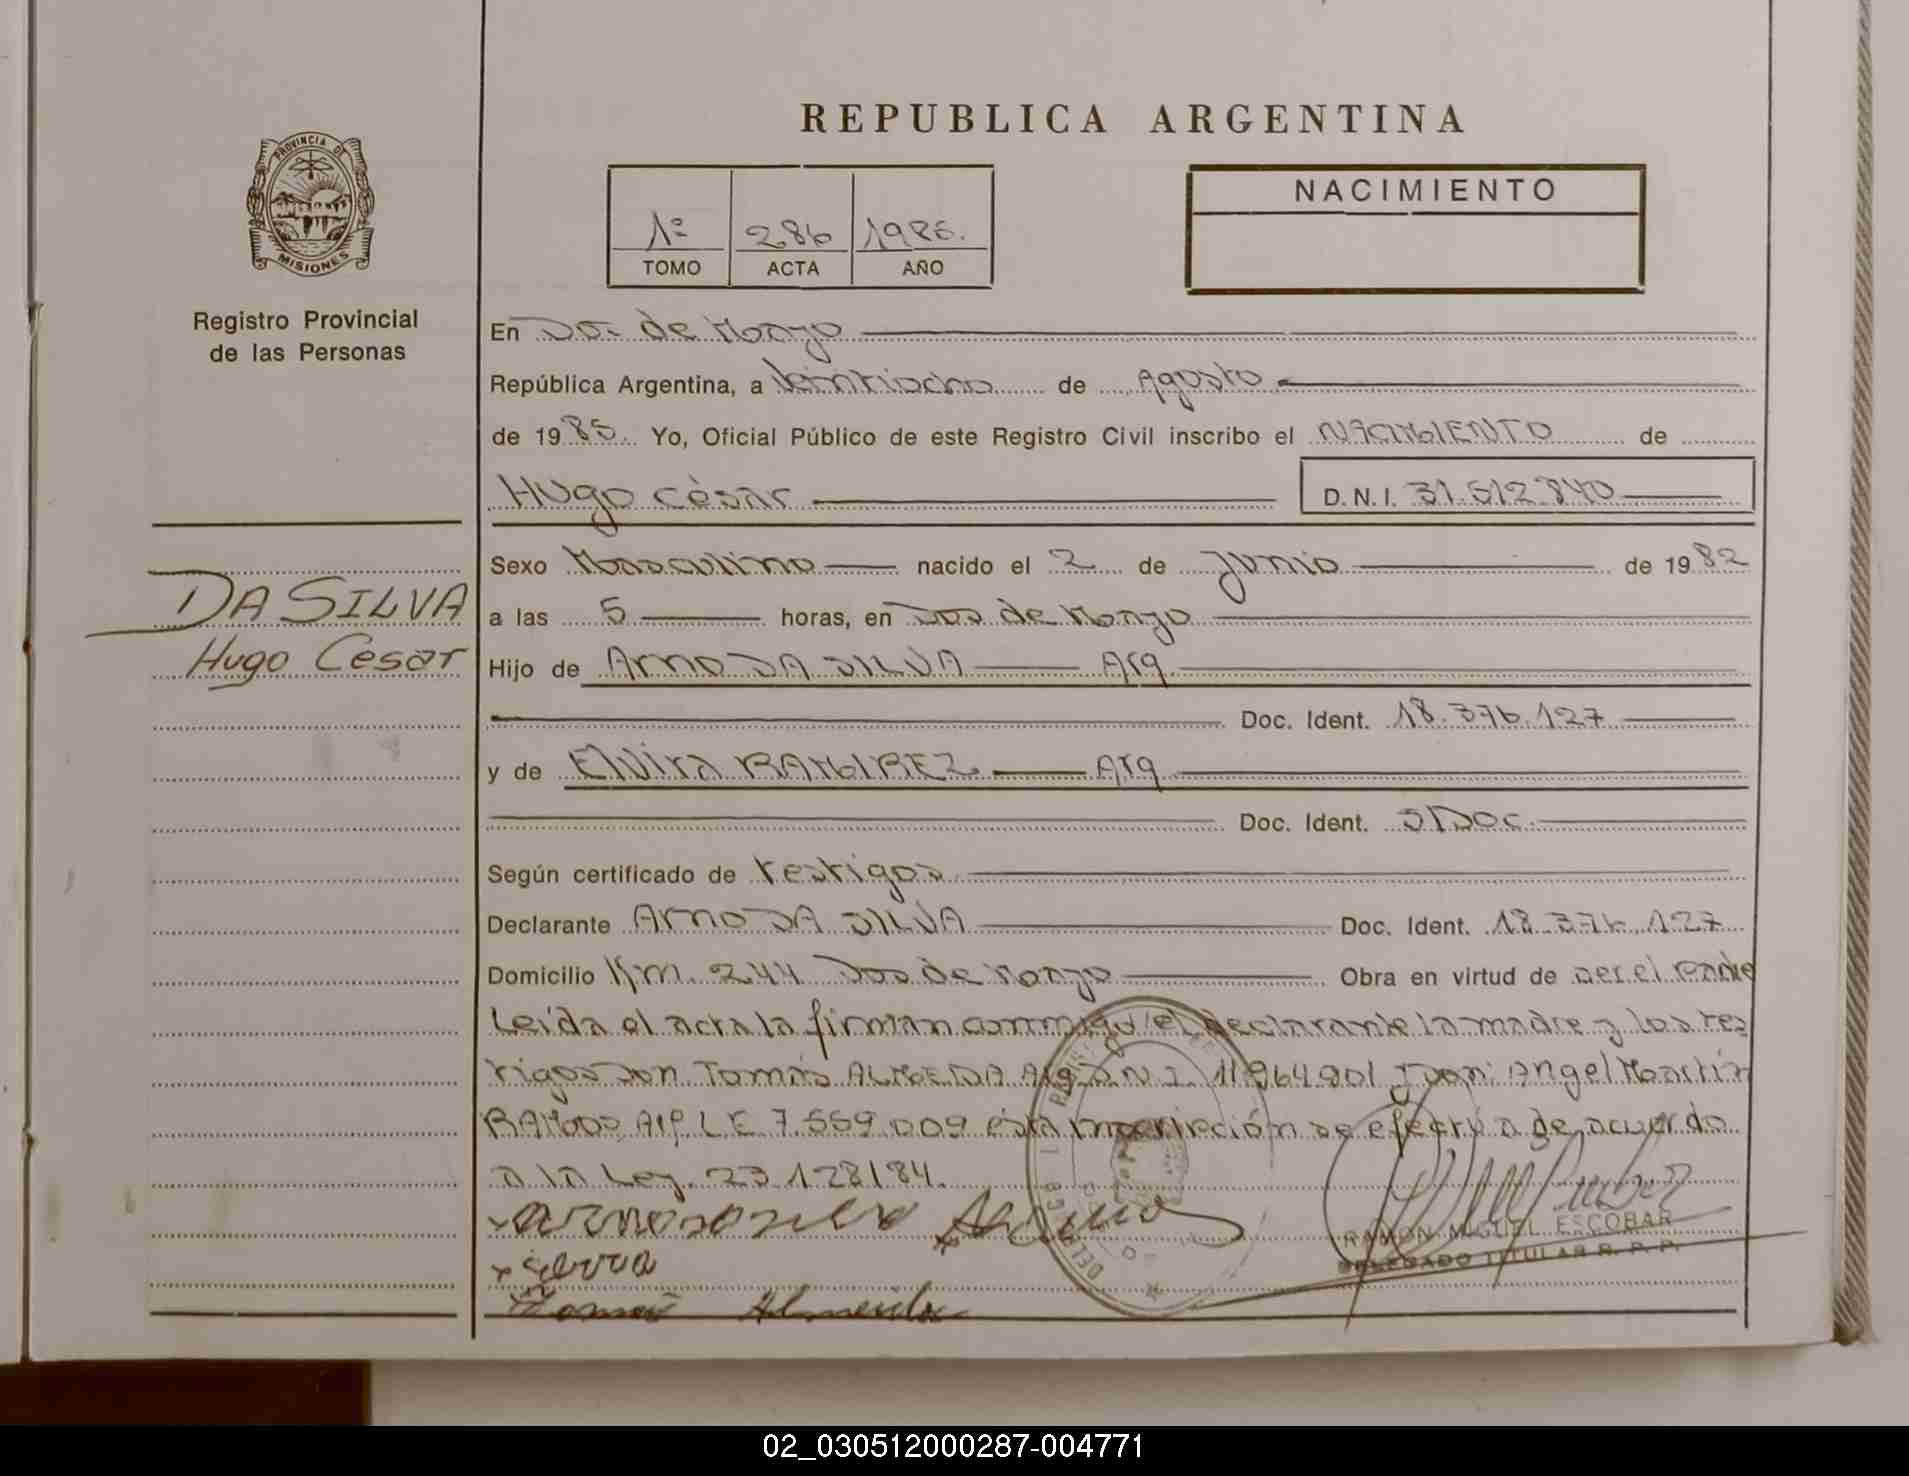 REPUBLICA ARGENTINA
PROVINCIA DE
MISIONES
Registro Provincial
de las Personas
1º 286 1985.
TOMO ACTA AÑO
NACIMIENTO
En Dos de Mayo
República Argentina, a Veintiocho de Agosto
de 1985. Yo, Oficial Público de este Registro Civil inscribo el NACIMIENTO de
Hugo César D.N.I. 31.512.840
DA SILVA
Hugo Cesar
Sexo Masculino nacido el 2 de Junio de 1982
a las 5 horas, en Dos de Mayo
Hijo de Arno DA SILVA Arg
Doc. Ident. 18.376.127
y de Elvira RAMIREZ Arg
Doc. Ident. S/Doc.
Según certificado de testigos
Declarante Arno DA SILVA Doc. Ident. 18.376.127
Domicilio Km. 244 Dos de Mayo Obra en virtud de ser el Padre
Leída el acta la firman conmigo el declarante la madre y los tes
tigos Don Tomás ALMEIDA Arg D.N.I. 11964901 y Don: Angel Martín
RAMOS Arg L E 7.559.009 ésta inscripción se efectúa de acuerdo
a la Ley. 23.128/84.
RAMON MIGUEL ESCOBAR
DELEGADO TITULAR R. P. P.
Tomas Almeida
02_030512000287-004771